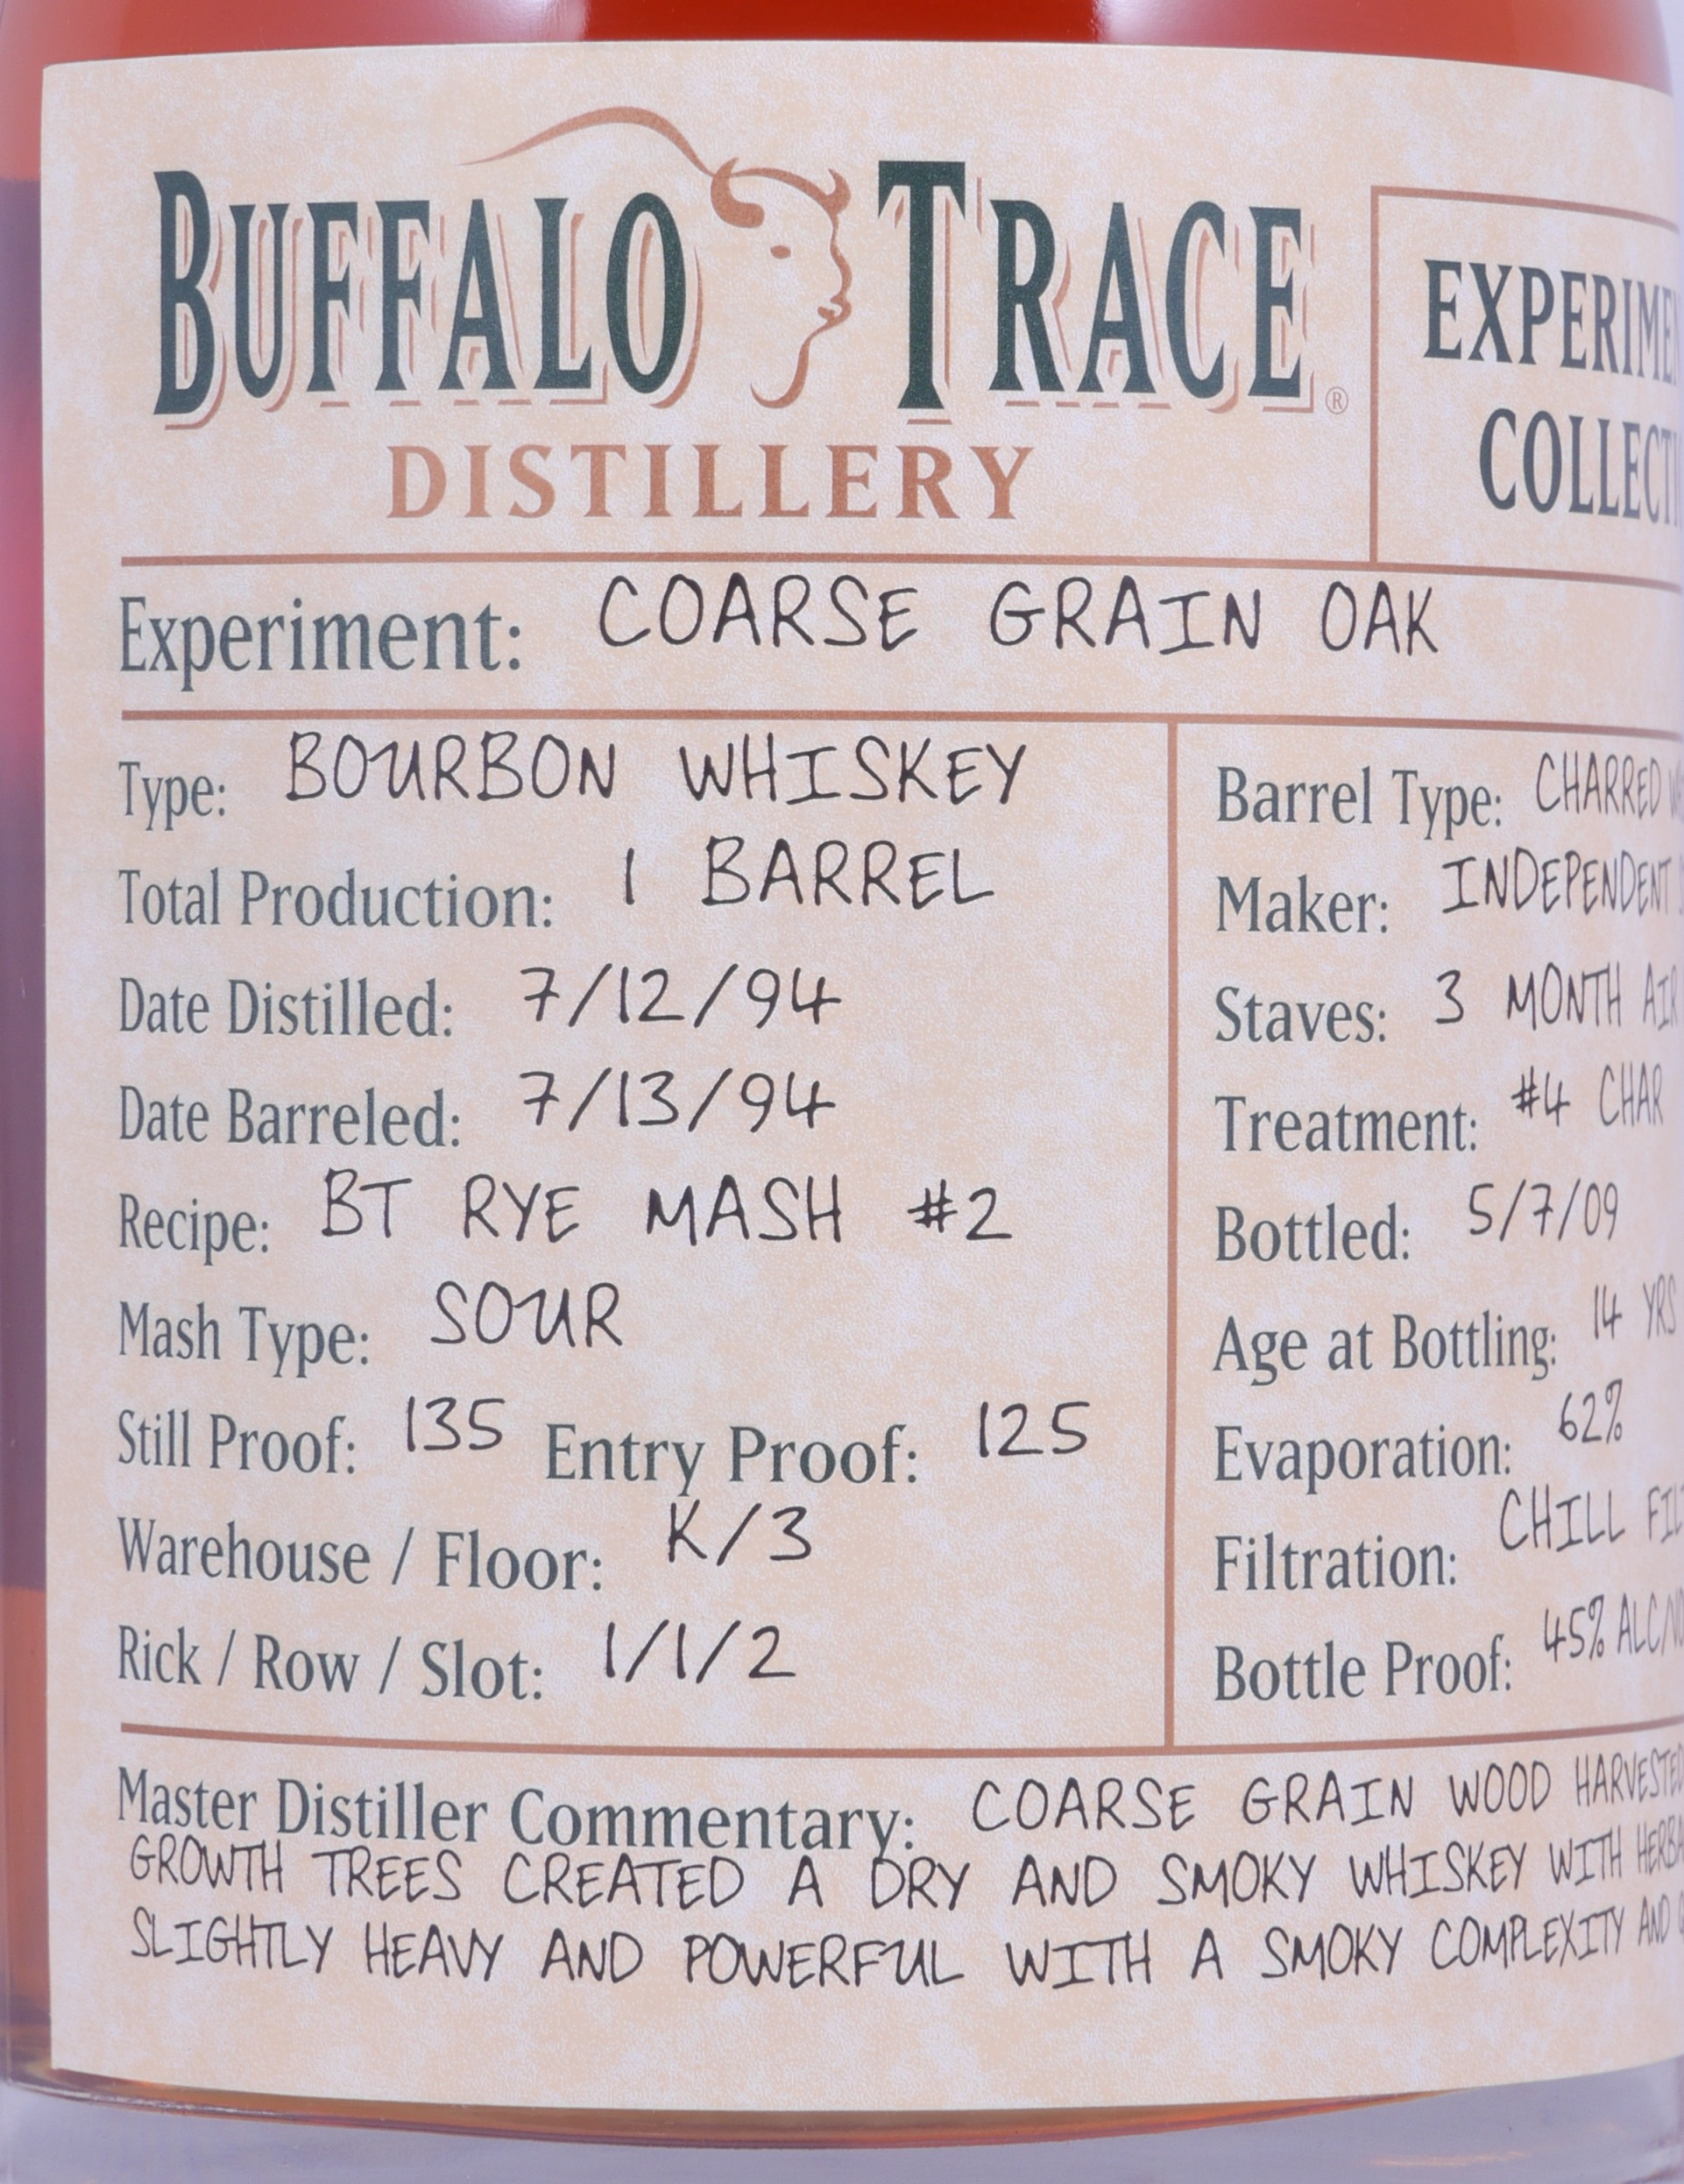 BUFFALO TRACE®
DISTILLERY
Experiment: COARSE GRAIN OAK
Type: BOURBON WHISKEY
Total Production: 1 BARREL
Date Distilled: 7/12/94
Date Barreled: 7/13/94
Recipe: BT RYE MASH #2
Mash Type: SOUR
Still Proof: 135 Entry Proof: 125
Warehouse / Floor: K/3
Rick / Row / Slot: 1/1/2
Barrel Type: CHARRED
Maker: INDEPENDENT
Staves: 3 MONTH AIR
Treatment: #4 CHAR
Bottled: 5/7/09
Age at Bottling: 14 YRS
Evaporation: 62%
Filtration: CHILL
Bottle Proof: 45% ALC/
Master Distiller Commentary: COARSE GRAIN WOOD HARVESTED
GROWTH TREES CREATED A DRY AND SMOKY WHISKEY WITH
SLIGHTLY HEAVY AND POWERFUL WITH A SMOKY COMPLEXITY AND